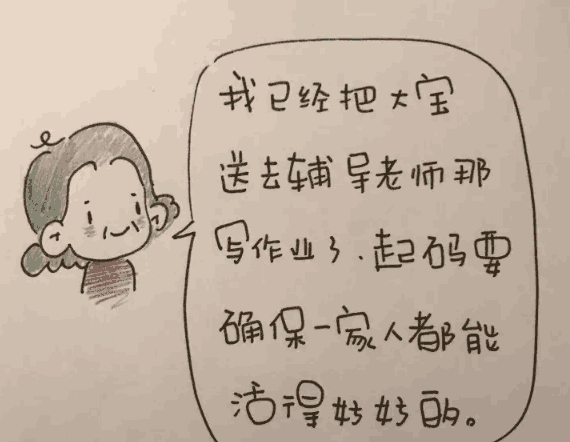 我已经把大宝
送去辅导老师那
写作业了.起码要
确保一家人都能
活得好好的。